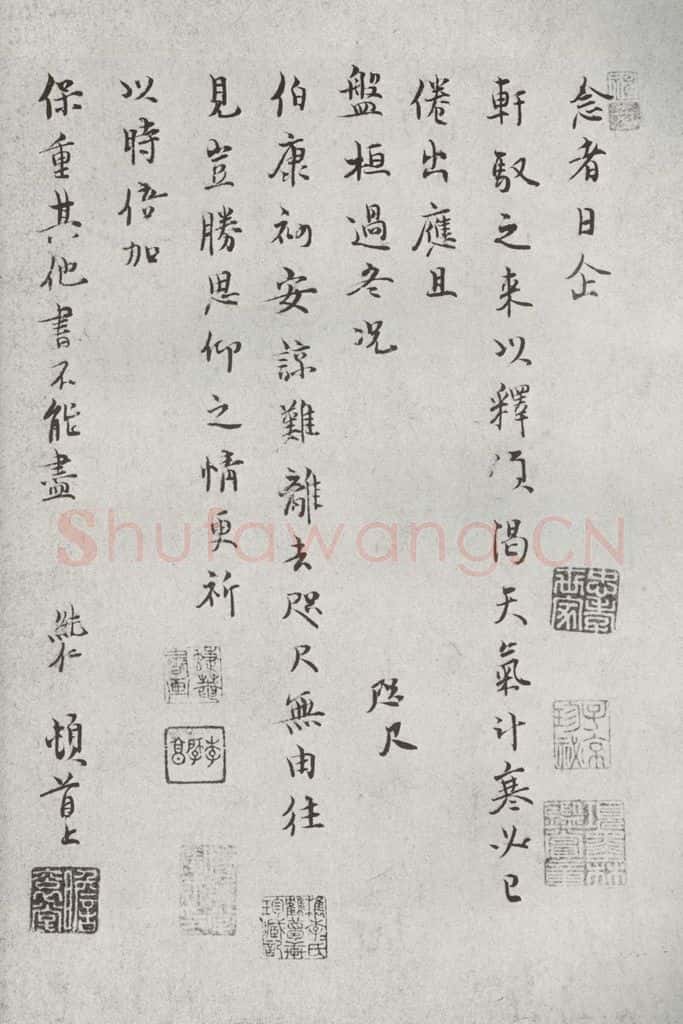 念者日企
軒馭之来以釋傾渴天氣计寒必已
倦出應且
盤桓過冬况
咫尺
伯康初安諒難離去咫尺無由往
見豈勝思仰之情更祈
以時倍加
保重其他書不能盡 純仁 頓首上
Shufawang.CN
子京珍祕